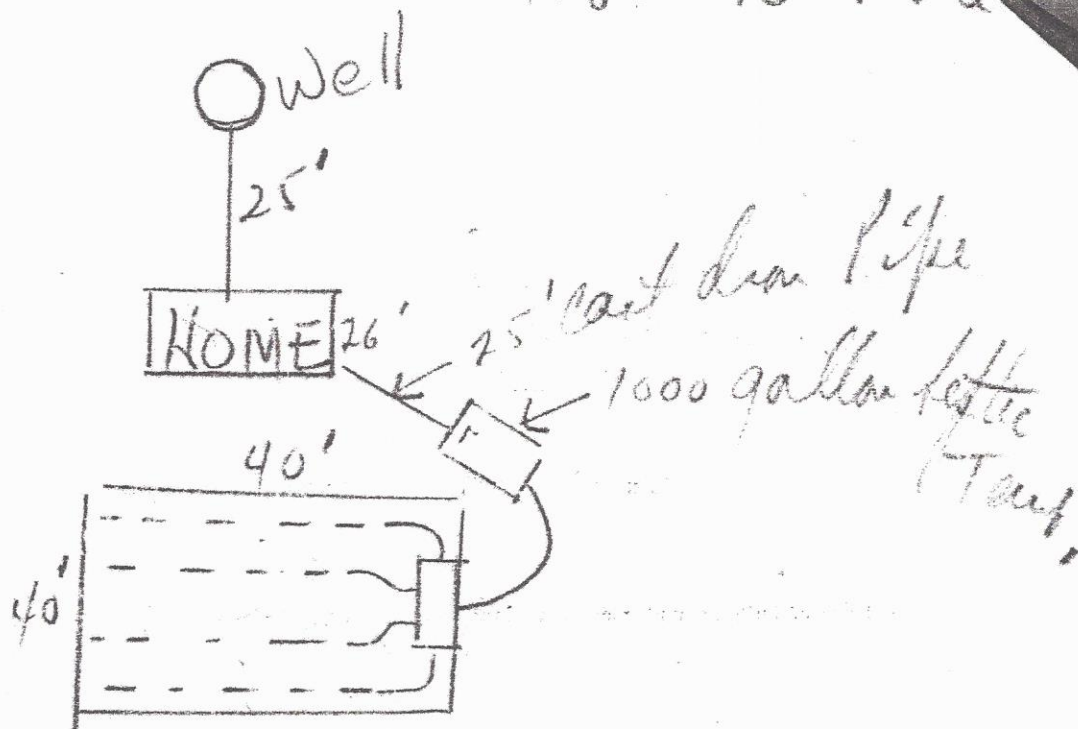 Well
25'
HOME 26'
25' cast Iron Pipe
1000 gallon septic
Tank
40'
40'